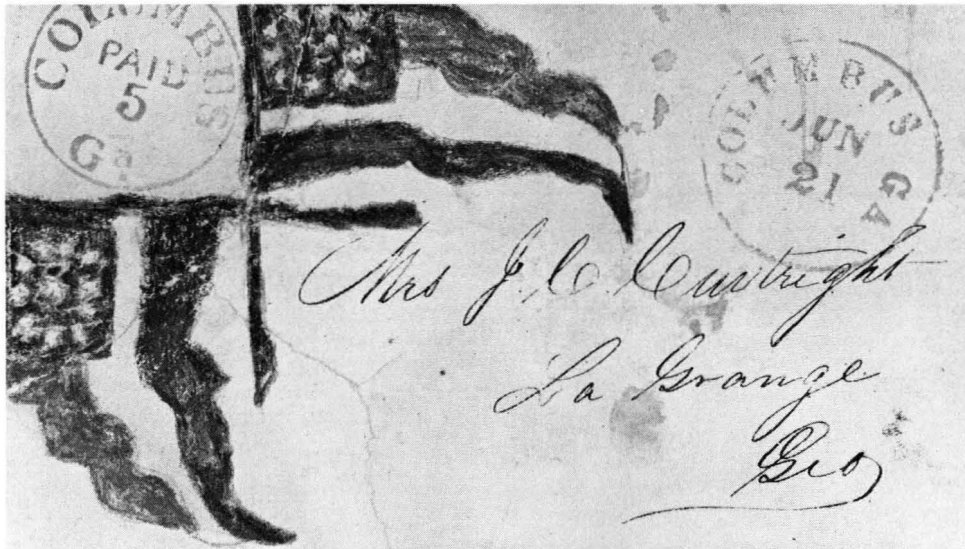 COLUMBUS
PAID
5
Ga
COLUMBUS GA
JUN
21
Mrs J. C. Curtright
La Grange
Geo